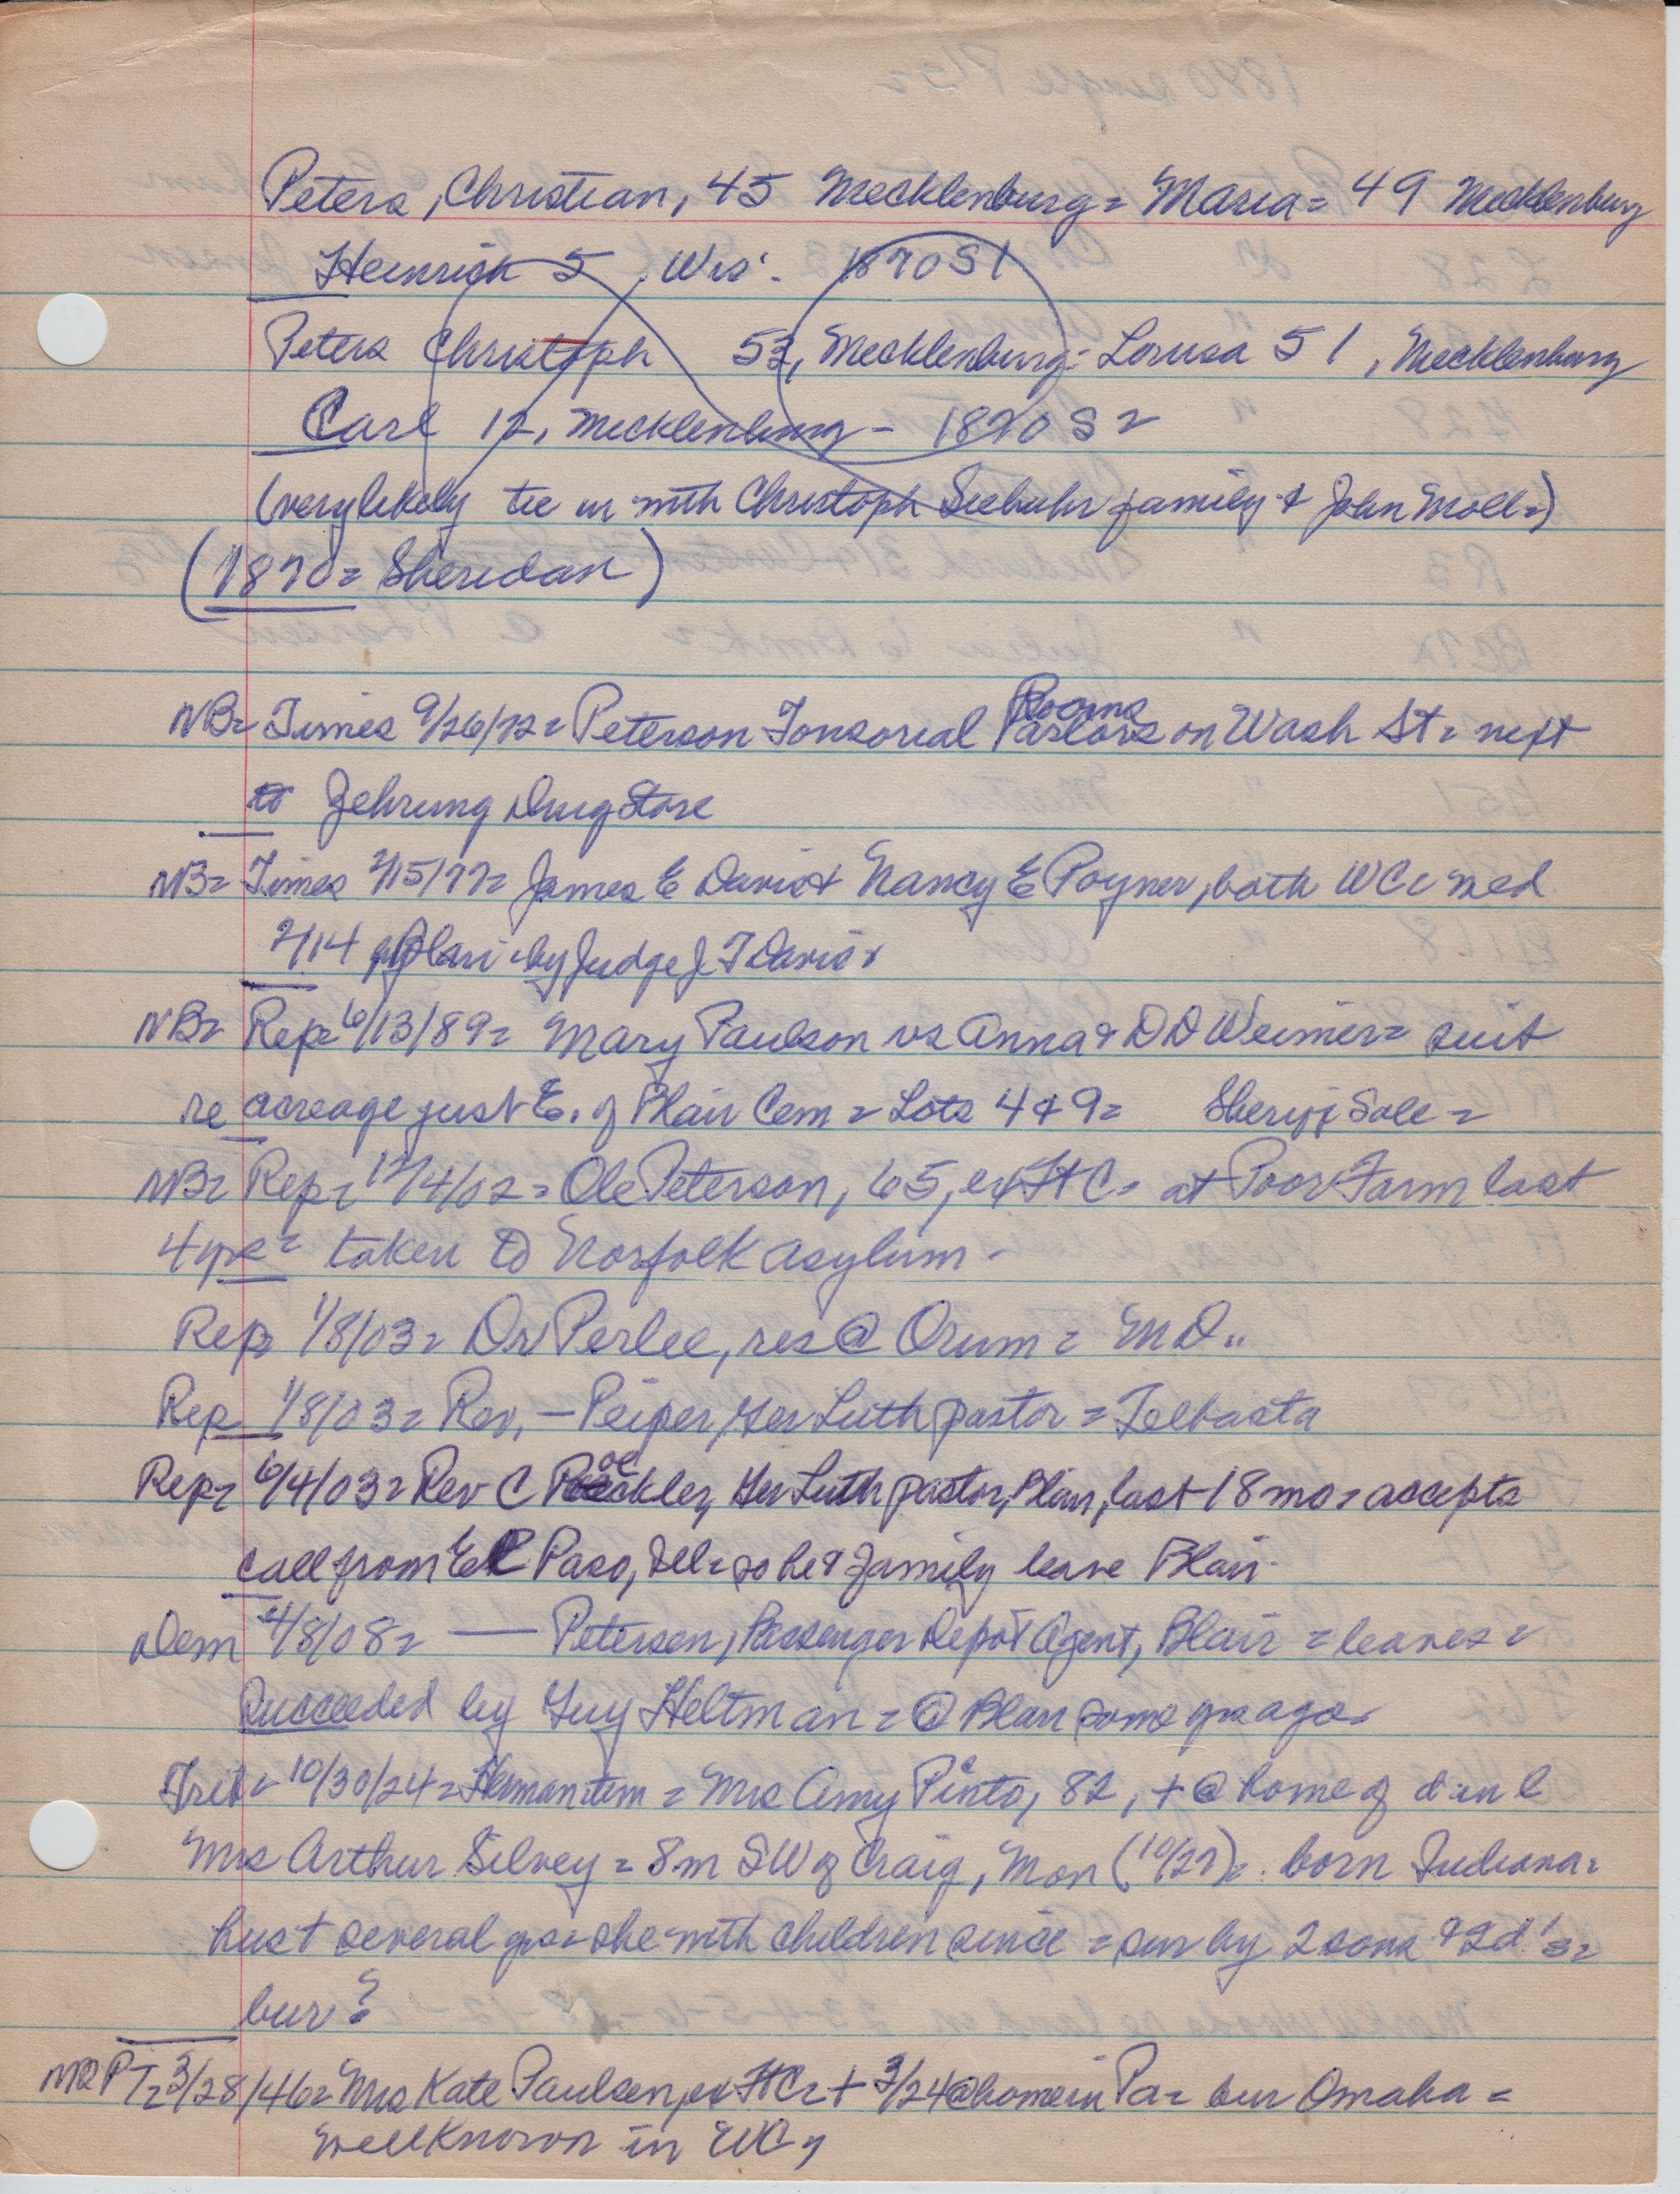 Peters, Christian, 45 Mecklenburg = Maria = 49 Mecklenburg
Heinrich 5, Wis. 1870 S1
Peters Christoph 53, Mecklenburg = Lorusa 51, Mecklenburg
Carl 12, Mecklenburg - 1870 S2
(very likely tie in with Christoph Seebuhr family & John Moll=)
(1870 = Sheridan)
NB= Times 9/26/72= Peterson Tonsorial Rooms on Wash St= next
to Zehrung Drug Store
NB= Times 2/15/77= James E Davis & Nancy E Poyner, both WC= med
2/14 @ Blair by Judge J T Davis
NB= Rep= 6/13/89= Mary Paulson vs Anna & D D Weimer= suit
re acreage just E. of Blair Cem = Lots 4 & 9= Sheriff Sale =
NB= Rep= 12/4/02= Ole Peterson, 65, ex Ft C= at Poor Farm last
4 yrs= taken to Norfolk asylum -
Rep= 1/8/03= Dr Perlee, res @ Orum = MD..
Rep 1/8/03= Rev. — Peiper, Ger Luth pastor = Telbasta
Rep= 6/4/03= Rev C Poeckler, Ger Luth pastor, Blair, last 18 mo= accepts
call from El Paso, Ill= so he & family leave Blair.
Dem 4/8/08= — Petersen, Passenger Depot Agent, Blair = leaves=
Succeeded by Guy Heltman = @ Blair some yrs ago.
Trib= 10/30/24= Herman item = Mrs Amy Pinto, 82, + @ home of d in l
Mrs Arthur Silvey = 8m SW of Craig, Mon (10/27)= born Indiana=
hus + several yrs= she with children since = sur by 2 sons & 2 d's=
bur?
PT= 3/28/46= Mrs Kate Paulsen, ex Ft C= + 3/24 @ home in Pa= bur Omaha =
well known in WC,